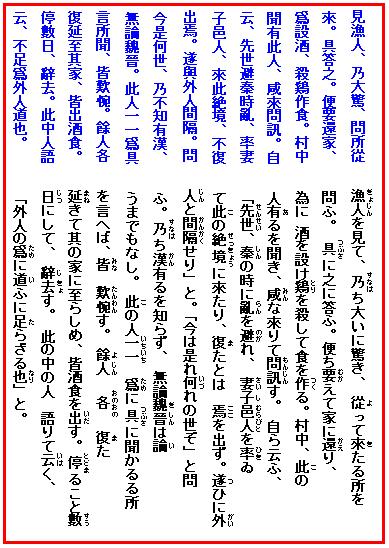 見漁人、乃大驚、問所從
來。具答之。便要還家、
爲設酒、殺鷄作食。村中
聞有此人、咸來問訊。自
云、先世避秦時亂、率妻
子邑人、來此絶境、不復
出焉。遂與外人間隔。問
今是何世、乃不知有漢、
無論魏晉。此人一一爲具
言所聞、皆歎惋。餘人各
復延至其家、皆出酒食。
停數日、辭去。此中人語
云、不足爲外人道也。
漁人を見て、乃ち大いに驚き、從って來たる所を
問ふ。 具に之に答ふ。便ち要えて家に還り、
為に 酒を設け鶏を殺して食を作る。村中、此の
人有るを聞き、咸な來りて問訊す。 自ら云ふ、
「先世、秦の時に亂を避れ、 妻子邑人を率ゐ
て此の絶境に來たり、復たとは 焉を出ず。遂ひに外
人と間隔せり」と。「今は是れ何れの世ぞ」と問
ふ。 乃ち漢有るを知らず、 無論魏晉は論
うまでもなし。 此の人一一 爲に具に聞かるる所
を言へば、皆 歎惋す。 餘人 各 復た
延きて其の家に至らしめ、皆酒食を出す。停ること數
日にして、 辭去す。 此の中の人 語りて云く、
「外人の爲に道ふに足らざる也」と。